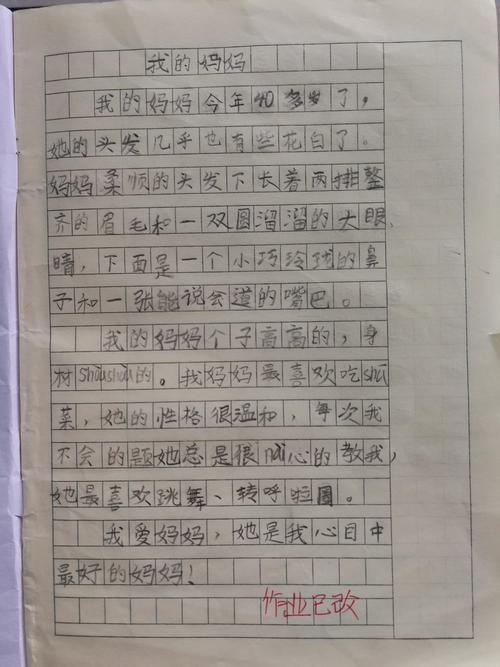 我的妈妈
我的妈妈今年40多岁了，
她的头发几乎也有些花白了。
妈妈柔顺的头发下长着两排整
齐的眉毛和一双圆溜溜的大眼
睛，下面是一个小巧玲珑的鼻
子和一张能说会道的嘴巴。
我的妈妈个子高高的，身
材shòushòu的。我妈妈最喜欢吃shū
菜，她的性格很温和，每次我
不会的题她总是很nài心的教我，
她最喜欢跳舞、转呼啦圈。
我爱妈妈，她是我心目中
最好的妈妈！
作业已改